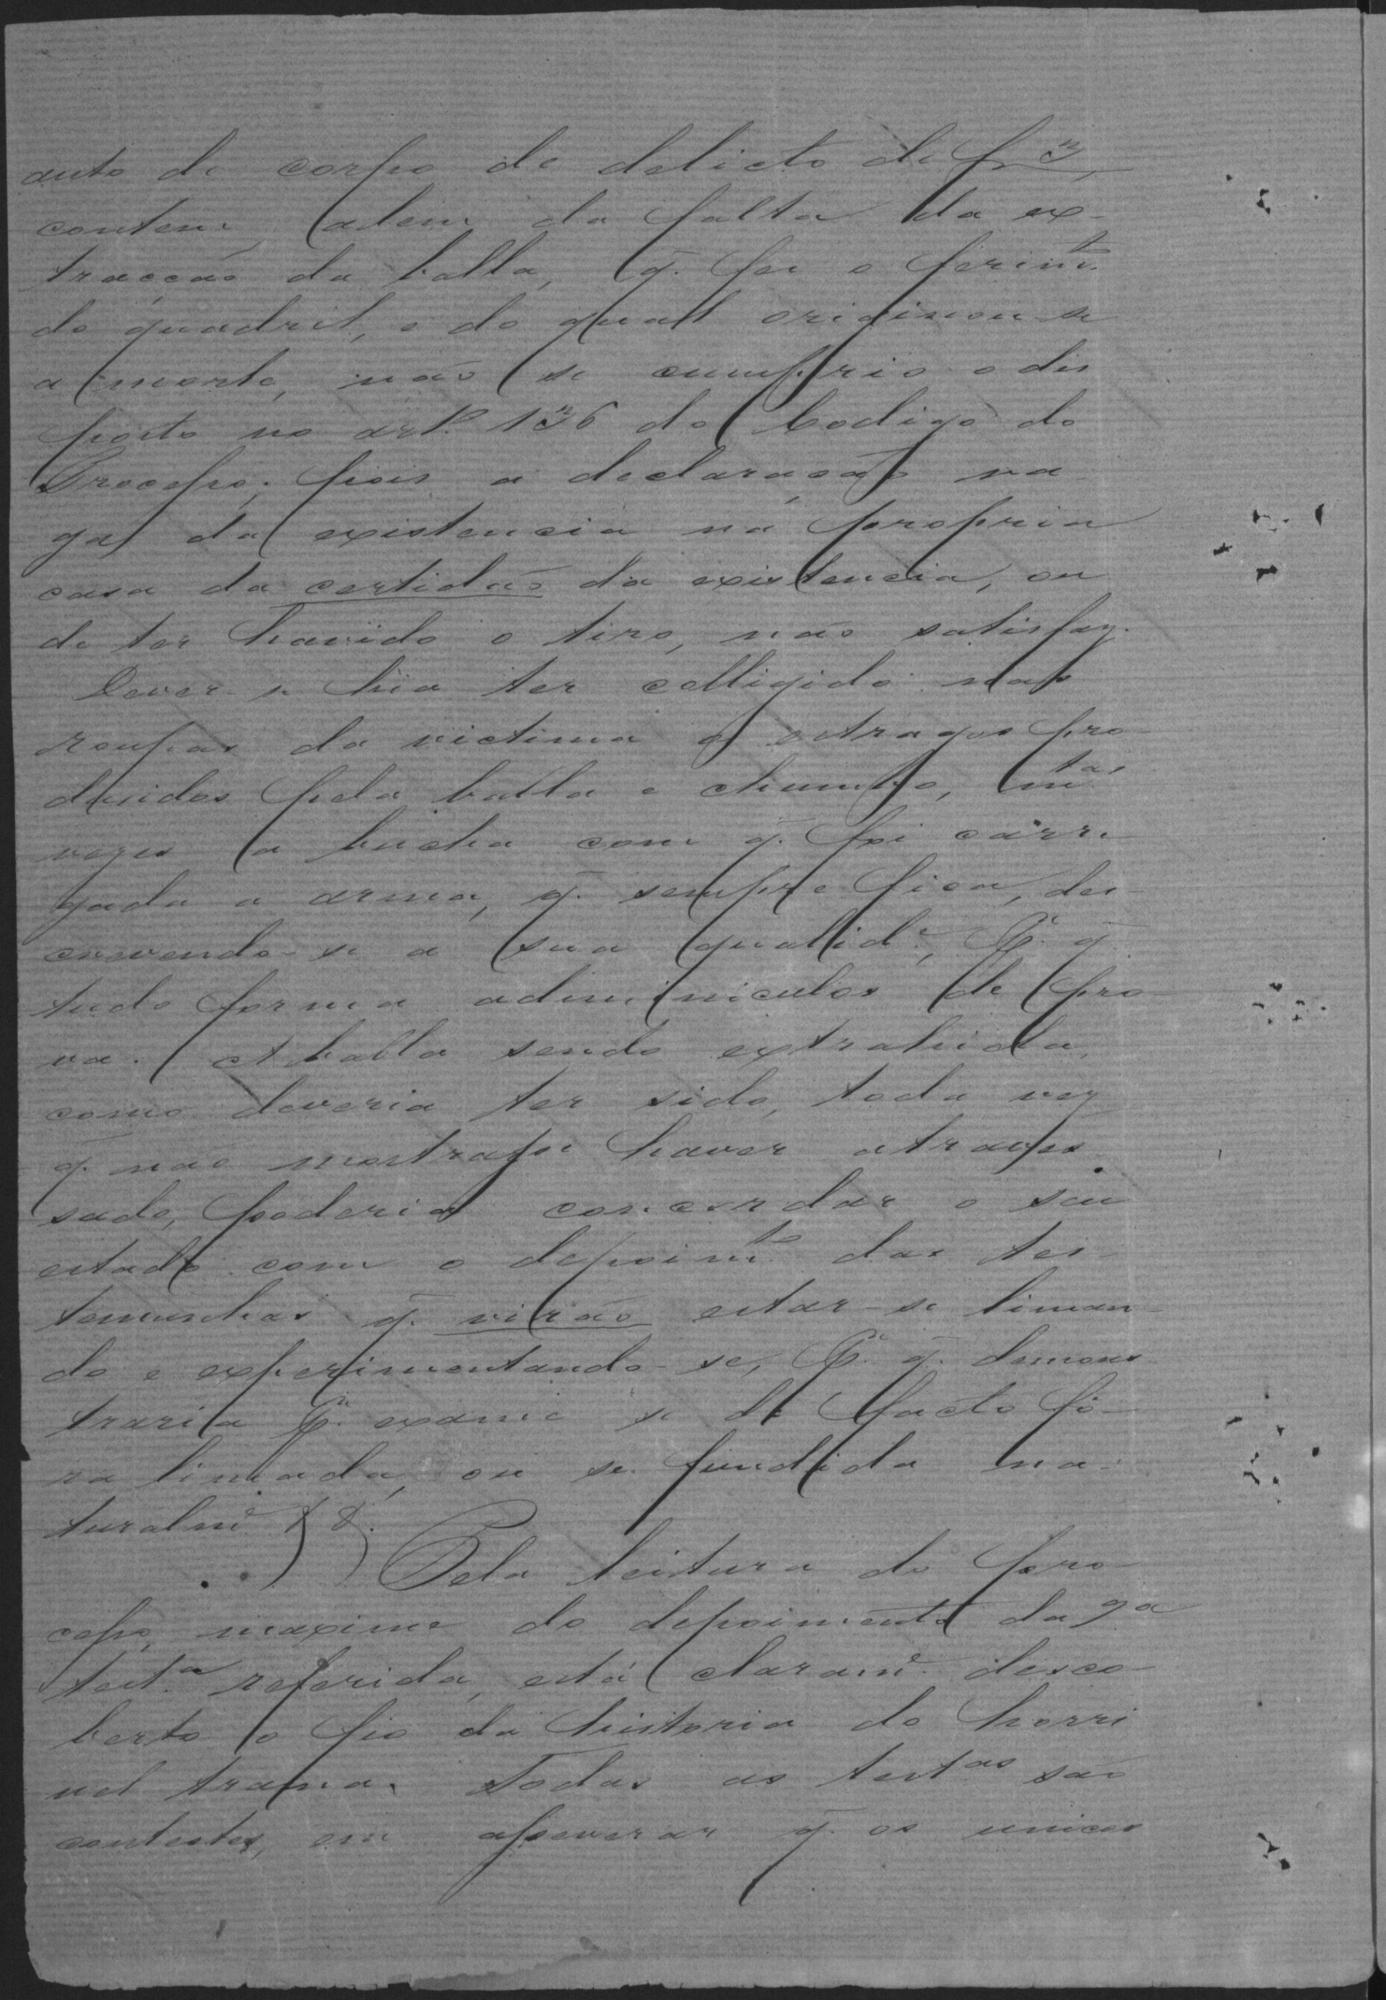 auto de corpo de delicto de f 3,
contem, alem da falta da ex-
tracção da balla, q. foi o ferim.to
do quadril, e do quall originou-se
a morte, não se cumprio o dis
posto no art.º 136 do Codigo do
Processo; pois a declaração va
ga da existencia na propria
casa da certidão da existencia, ou
de ter havido o tiro, não satisfaz.
Dever-se-hia ter colligido nas
roupas da victima os estragos pro
dusidos pela balla e chumbo, m.tas
vezes a bucha com q. foi carre
gada a arma, q. sempre fica, des
crevendo-se a sua qualid.e, P.r q
tudo forma adminiculos de pro
va. A balla sendo extrahida,
como deveria ter sido, toda vez
q. não mostrasse haver atraves
sado, poderia concordar o seu
estado com o depoim.to das tes-
temunhas q. virão estar-se liman-
do e experimentando-se, P.r q. demons
traria P.r exame se de facto fô-
ra limada, ou se fundida na-
turalm.e &&.
Pela leitura do pro
cesso, maxime do depoimento da 9a
test.a referida, está claram.e desco-
berto o fio da historia do horri
vel trama. Todas as test.as são
contestes, em asseverar q. os unicos